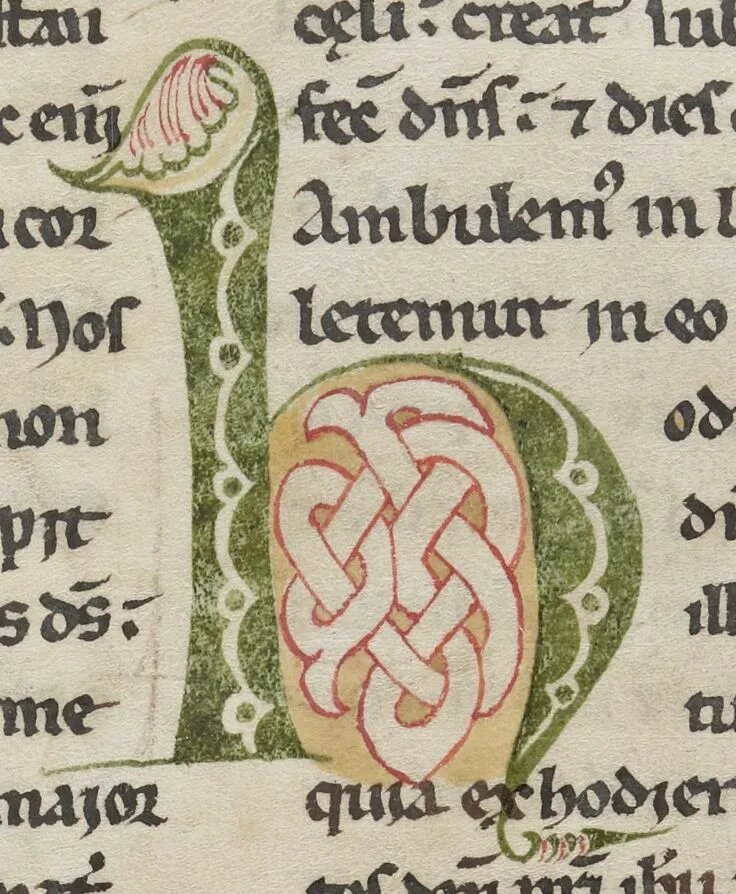 stan
c eni
cor
. Nos
non
pit
s dn̄s :
me
major
cęli : creat sub
fec̄ dn̄s : ⁊ dies
Ambulem⁹ in l
letemur in eo
h od
ill
tu
quia ex hodier